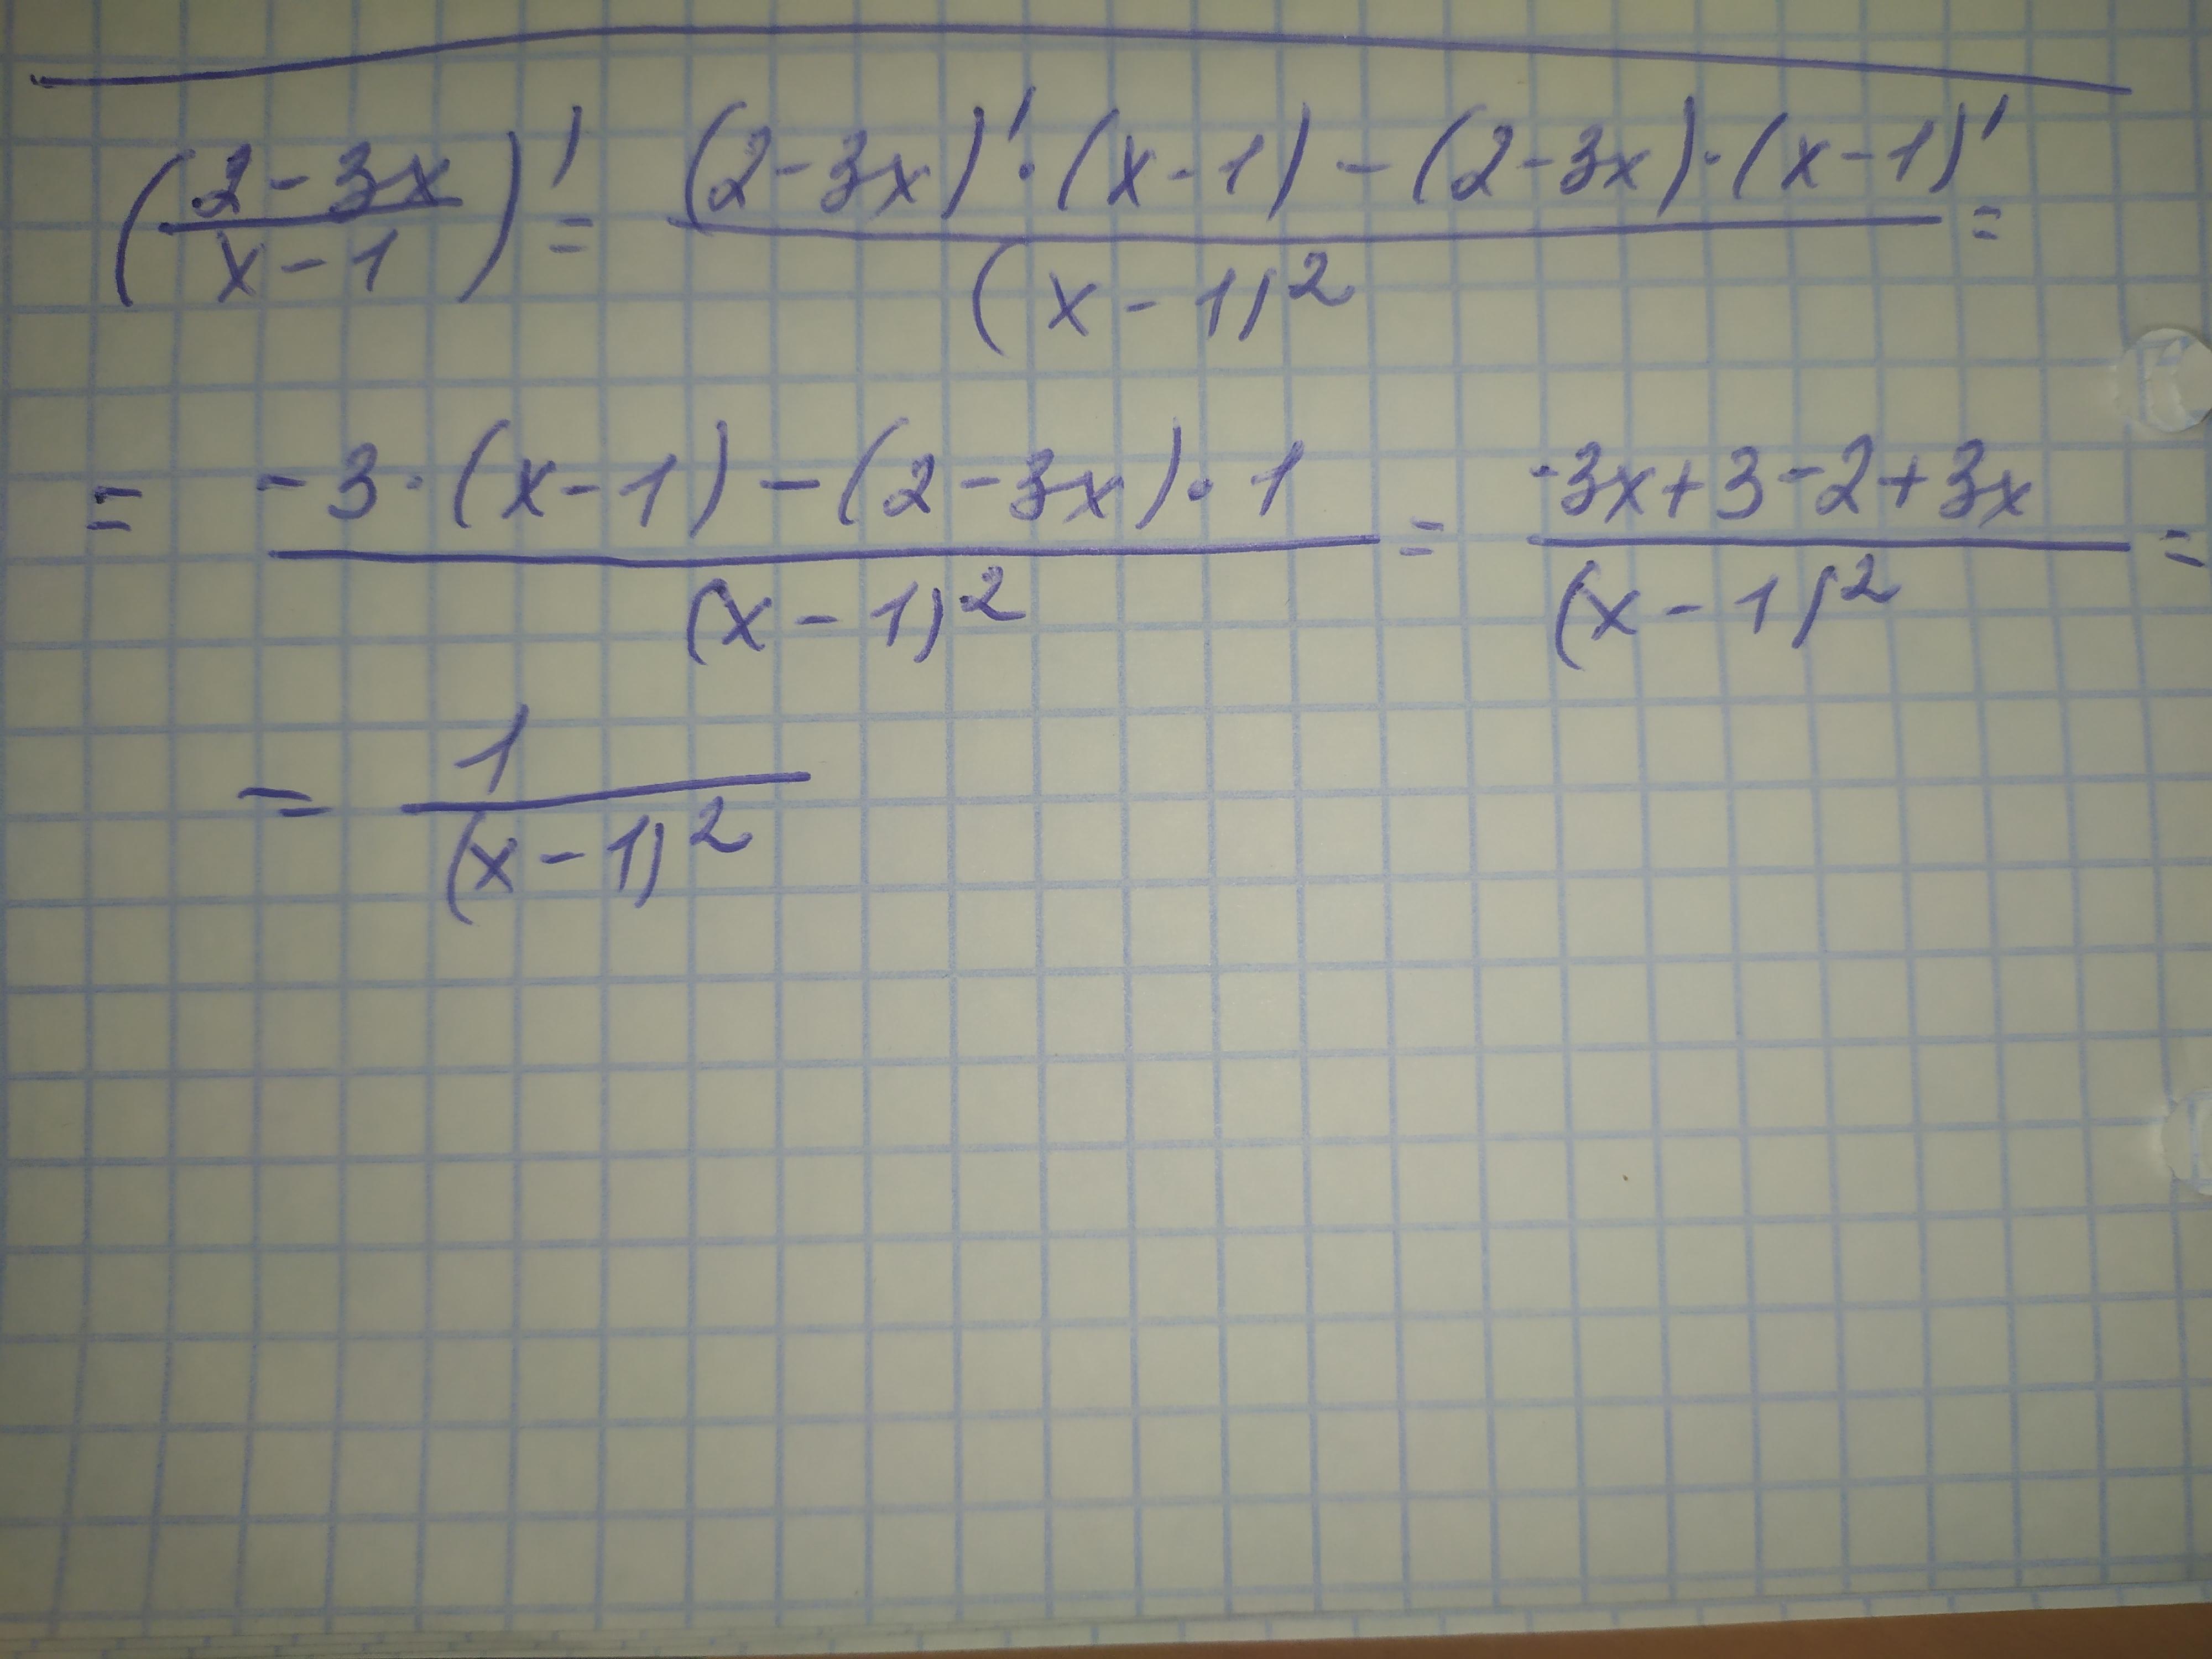 (2-3x / x-1)' = (2-3x)'·(x-1)-(2-3x)·(x-1)' / (x-1)² =
= -3·(x-1)-(2-3x)·1 / (x-1)² = -3x+3-2+3x / (x-1)² =
= 1 / (x-1)²